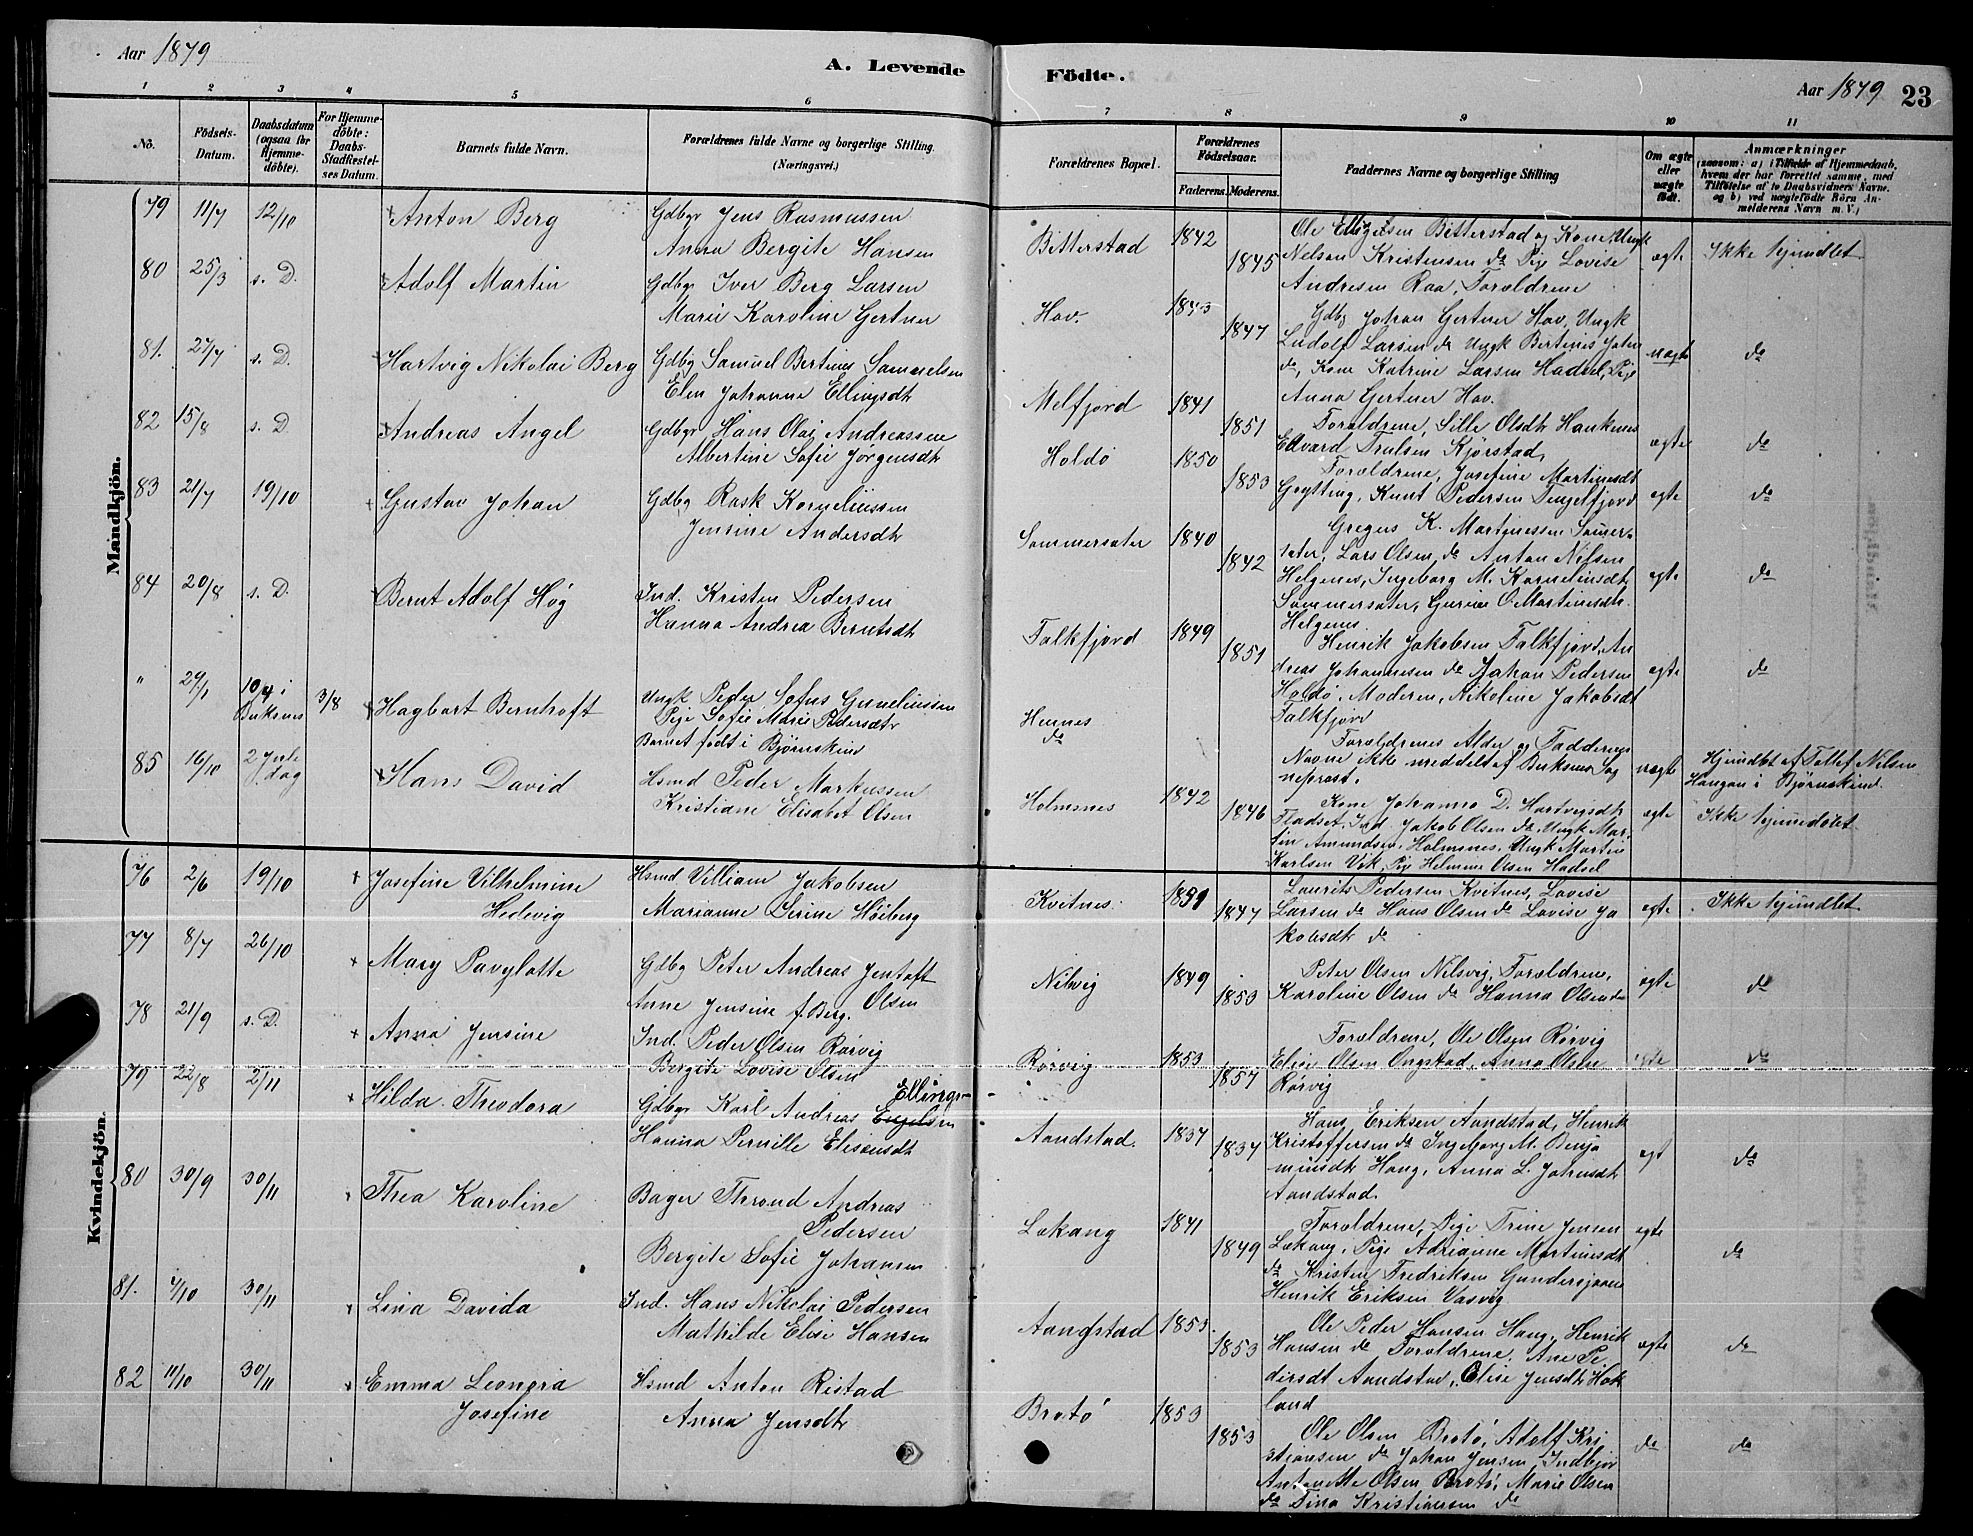 Aar 1879
A. Levende
Födte.
Aar 1879
23
1 2 3 4 5 6
7 8 9 10 11
No.
Födsels-Datum.
Daabsdatum (ogsaa for Hjemmedöbte).
For Hjemmedöbte: Daabs-Stadfæstelses Datum.
Barnets fulde Navn.
Forældrenes fulde Navne og borgerlige Stilling.
(Næringsvei.)
Forældrenes Bopæl.
Forældrenes Födselsaar.
Faderens. Moderens.
Faddernes Navne og borgerlige Stilling
Om ægte eller uægte födt.
Anmærkninger
(saasom: a) i Tilfælde af Hjemmedaab,
hvem der har forrettet samme, med
Tilföielse af to Daabsvidners Navne.
og b) ved uægtefödte Börn An-
melderens Navn m. V.)
Mandkjön.
79 11/7 12/10 Anton Berg
Gdbgr Jens Rasmussen
Anna Bergite Hansen
Bitterstad 1842 1845
Ole Ellingsen Bitterstad og Kone, Ungk
Nelson Kristensen do Pige Lovise
Andresen Raa, Forældrene
ægte
Ikke hjemdbt
80 25/3 s. D. Adolf Martin
Gdbgr Iver Berg Larsen
Marie Karoline Gertner
Hov. 1843 1847
Gdbg Johan Gertner Hov, Ungk
Ludolf Larsen do Ungk Bertines John
do, Kone Katrine Larsen Hadsel, Pige
Anna Gertner Hov.
uægte
do
81. 27/7 s. D. Hartvig Nikolai Berg
Gdbg Samuel Bertines Samuelsen
Elen Johanna Ellingsdt
Melfjord 1841 1851
Forældrene, Sille Olsdtr Hauknes
Edvard Trulsen Kjørstad,
ægte
do
82 15/8 s. D. Andreas Angel
Gdbgr Hans Olai Andreassen
Albertine Sofie Jørgensdt
Holdö 1850 1853
Forældrene, Josefine Martinesdt
Grytting, Knut Pedersen Fengelfjord
egte
do
83 21/7 19/10 Gustav Johan
Gdbg Rask Korneliussen
Jensine Andersdt
Sommersæter 1840 1842
Gregus K. Martinessen Somer-
sæter, Lars Olsen, do Anton Nilsen
Helgenes, Ingeborg M. Korneliusdt,
Sommersæter, Gurine O. Martinesdt.
Helgenes
egte
do
84 20/8 s. D. Bernt Adolf Høg
Ind. Kristen Pedersen
Hanna Andrea Berntsdt
Falkfjord 1849 1851
Henrik Jakobsen Falkfjord, An
dreas Johannesen do Johan Pedersen
Holdö Moderen, Nikoline Jakobsdt
Falkfjord
egte
do
" 29/1 10/4 i Buksnes 3/8 Hagbart Bernhoft
Ungk Peder Sofus Guneliussen
Pige Sofie Marie Pedersdtr
Barnet født i Bjørnskind
Hennes
do
Forældrenes Alder og Faddernes
Navne ikke meddelt af Buksnes Sog
neprest.
uægte
Hjemdbt af Tollef Nilsen
Haugan i Bjørnskind.
85 16/10 2 Jule dag Hans David
Hsmd Peder Markussen
Kristiane Elisabet Olsen
Holmsnes 1842 1846
Kone Johanna D. Hartvigsdt
Fladset, Ind. Jakob Olsen do Ungk Mar-
tin Amundsen, Holmsnes, Ungk Martin
Karlsen Vik, Pige Helmine Olsen Hadsel
egte
Ikke hjemdöbt
Kvindekjön.
76 2/6 19/10 Josefine Vilhelmine
Hedevig
Hsmd Villiam Jakobsen
Marianne Serine Høiberg
Kvitnes. 1847
Laurits Pedersen Kvitnes, Lovise
Larsen do Hans Olsen do Lovise Ja
kobsdt do
egte
Ikke hjemdbt
77 8/7 26/10 Mary Pavylotte
Gdbg Peter Andreas Jentoft
Olsen
Anne Jensine f. Berg.
Nilsvig 1849 1853
Peter Olsen Nilsvig, Forældrene,
Karoline Olsen do Hanna Olsen do
ægte
do
78 21/9 s. D. Anna Jensine
Ind. Peder Olsen Rørvig
Bergite Lovise Olsen
Rørvig 1853 1857
Forældrene, Ole Olsen Rørvig
Elise Olsen Ongstad, Anna Olsen
Rørvig
egte
do
79 22/8 2/11 Hilda Theodora
Gdbgr Karl Andreas Ellings-
Hanna Pernille Elisensdt
Aandstad. 1837 1837
Hans Eriksen Aandstad, Henrik
Kristoffersen do Ingeborg M. Benja
minsdt Haug, Anna L. Johnsdt
Aandstad.
egt
do
80 30/9 30/11 Thea Karoline
Bager Thrond Andreas
Pedersen
Bergite Sofie Johansen
Løkang 1841 1849
Forældrene, Pige Trine Jensen
Løkang, Pige Adrianne Martinesdt
do Kristen Fredriksen Gundersjaaen
Henrik Eriksen Vasvig
egte
do
81. 4/10 30/11 Lina Davida
Ind. Hans Nikolai Pedersen
Mathilde Elise Hansen
Aandstad 1853. 1853
Ole Peder Hansen Haug, Henrik
Hansen do Forældrene, Ane Pe
dersdt Aandstad, Elise Jensdt Hok
land
ægte
do
82 11/10 30/11 Emma Leonora
Josefine
Hsmd Anton Ristad
Anna Jensdtr
Brotö 1853 1853
Ole Olsen Brotö, Adolf Kri
stiansen do Johan Jensen Indbjor
Antonette Olsen Brotö, Marie Olsen
do Tina Kristiansen do
do
do